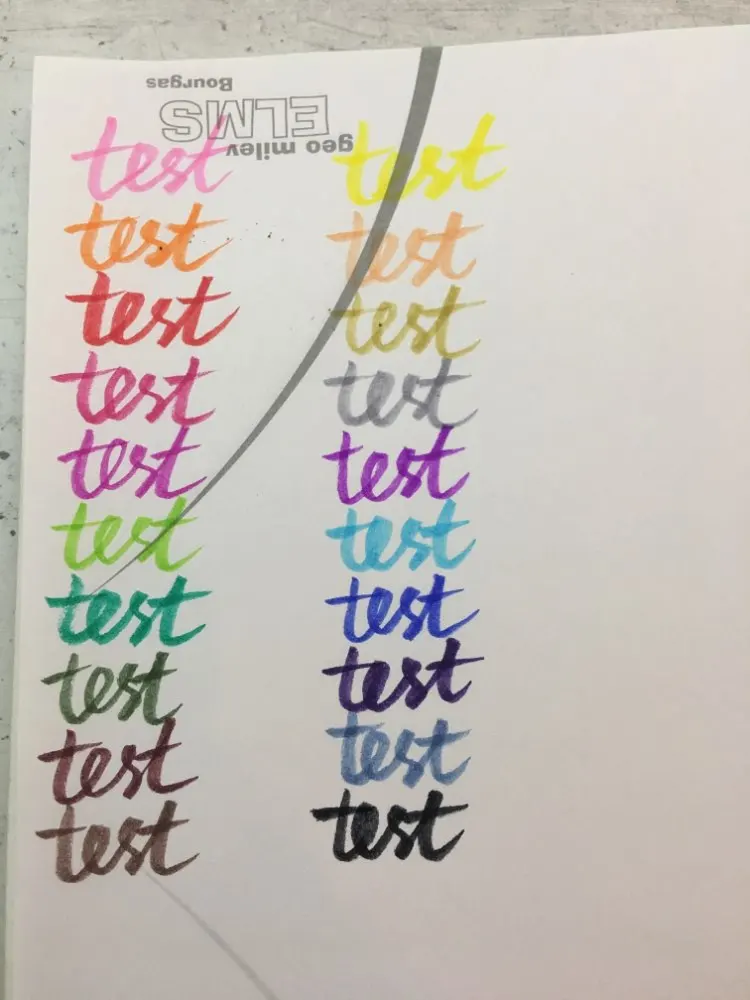 Bourgas
ELMS
geo milev
test test
test test
test test
test test
test test
test test
test test
test test
test test
test test